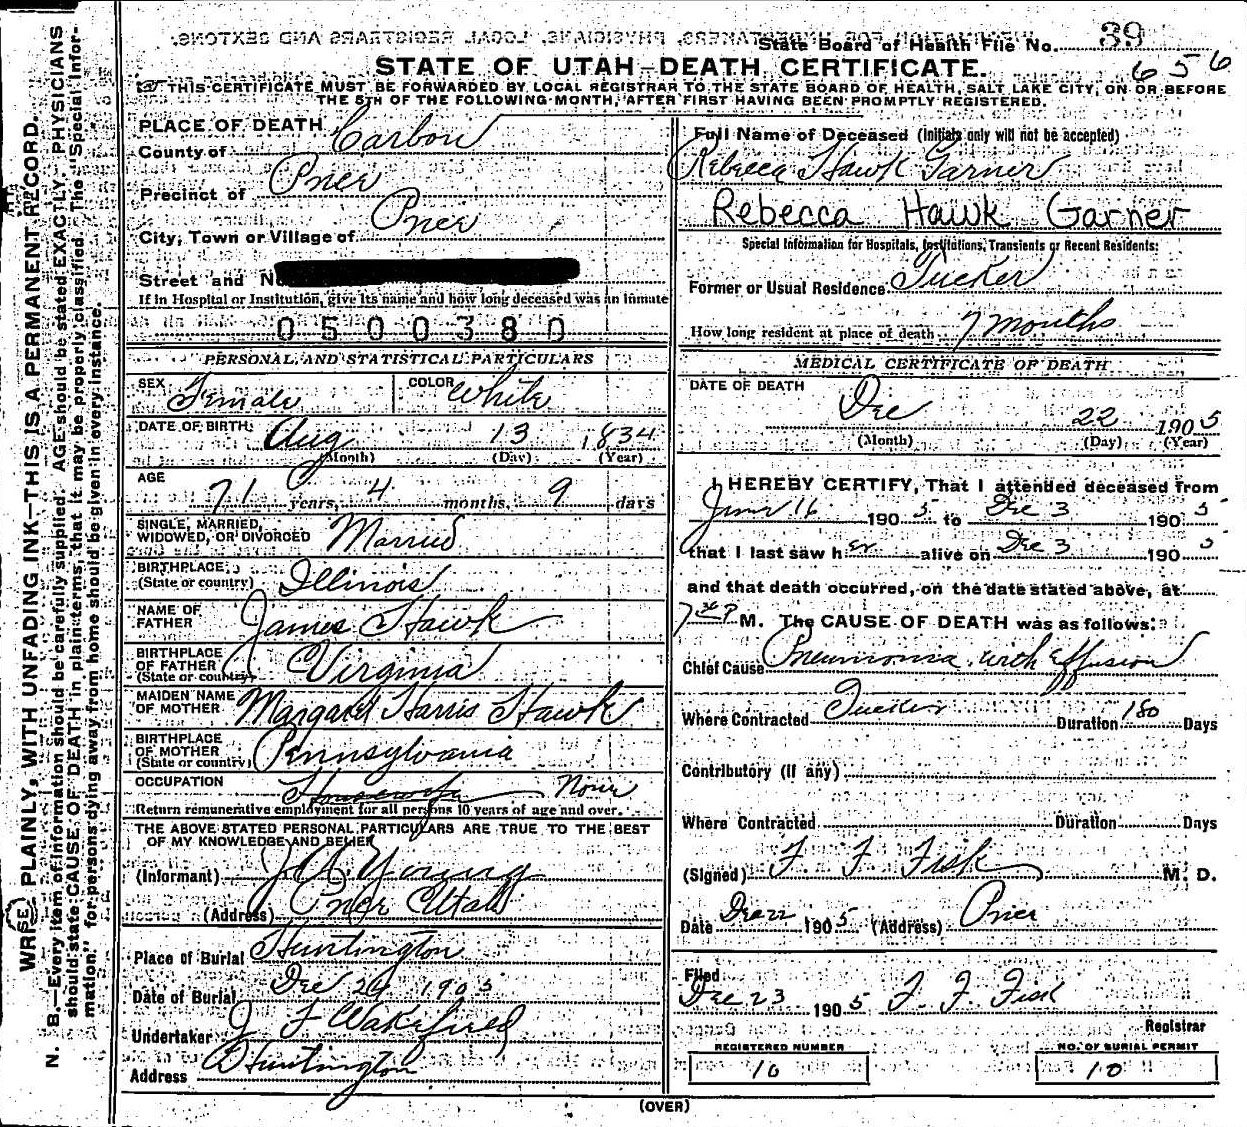 State Board of Health File No. 39
656
STATE OF UTAH—DEATH CERTIFICATE.
THIS CERTIFICATE MUST BE FORWARDED BY LOCAL REGISTRAR TO THE STATE BOARD OF HEALTH, SALT LAKE CITY, ON OR BEFORE
THE 5TH OF THE FOLLOWING MONTH, AFTER FIRST HAVING BEEN PROMPTLY REGISTERED.
PLACE OF DEATH
County of Carbon
Precinct of Price
City, Town or Village of Price
Street and No
If in Hospital or Institution, give its name and how long deceased was an inmate
0500380
PERSONAL AND STATISTICAL PARTICULARS
SEX Female COLOR White
DATE OF BIRTH: Aug 13 1834
(Month) (Day) (Year)
AGE
71 years, 4 months, 9 days
SINGLE, MARRIED,
WIDOWED, OR DIVORCED Married
BIRTHPLACE
(State or country) Illinois
NAME OF
FATHER James Hawk
BIRTHPLACE
OF FATHER
(State or country) Virginia
MAIDEN NAME
OF MOTHER Margaret Harris Hawk
BIRTHPLACE
OF MOTHER
(State or country) Pennsylvania
OCCUPATION Housewife None
Return remunerative employment for all persons 10 years of age and over.
THE ABOVE STATED PERSONAL PARTICULARS ARE TRUE TO THE BEST
OF MY KNOWLEDGE AND BELIEF
(Informant) Young
(Address) Price Utah
Place of Burial Huntington
Date of Burial Dec 24 1905
Undertaker J F Wakefield
Address Huntington
Full Name of Deceased (Initials only will not be accepted)
Rebecca Hawk Garner
Rebecca Hawk Garner
Special Information for Hospitals, Institutions, Transients or Recent Residents:
Former or Usual Residence Tucker
How long resident at place of death 7 months
MEDICAL CERTIFICATE OF DEATH
DATE OF DEATH
Dec 22 1905
(Month) (Day) (Year)
I HEREBY CERTIFY, That I attended deceased from
June 16 1905 to Dec 3 1905
that I last saw her alive on Dec 3 1905
and that death occurred, on the date stated above, at
M. The CAUSE OF DEATH was as follows:
Chief Cause Pneumonia with effusion
Where Contracted Tucker Duration 180 Days
Contributory (if any)
Where Contracted Duration Days
(Signed) F. F. Fisk M. D.
Date Dec 22 1905 (Address) Price
Filed
Dec 23 1905 F. F. Fisk
Registrar
REGISTERED NUMBER
10
NO. OF BURIAL PERMIT
10
(OVER)
WRITE PLAINLY, WITH UNFADING INK—THIS IS A PERMANENT RECORD.
N. B.—Every item of information should be carefully supplied. AGE should be stated EXACTLY. PHYSICIANS
should state CAUSE OF DEATH in plain terms, that it may be properly classified. The "Special Infor-
mation" for persons dying away from home should be given in every instance.